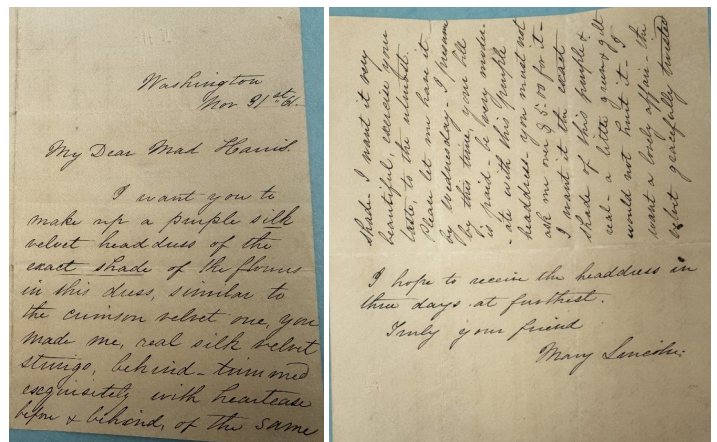 Washington
Nov 21st 61.
My Dear Mad Harris.
I want you to
make up a purple silk
velvet headdress of the
exact shade of the flowers
in this dress, similar to
the crimson velvet one, you
made me, real silk velvet
strings, behind - trimmed
exquisitely with heartsease
before & behind, of the same
shade - I want it very
beautiful, exercise your
taste, to the utmost.
Please let me have it
by Wednesday - I presume
by this time, your bill
is paid - be very moder-
-ate with this purple
headdress - you must not
ask me over $5.00 for it -
I want it the exact
shade of this purple &
real - a little green & gilt
would not hurt it - I
want a lovely affair - the
velvet gracefully twisted
I hope to receive the headdress in
three days at furthest.
Truly your friend
Mary Lincoln.